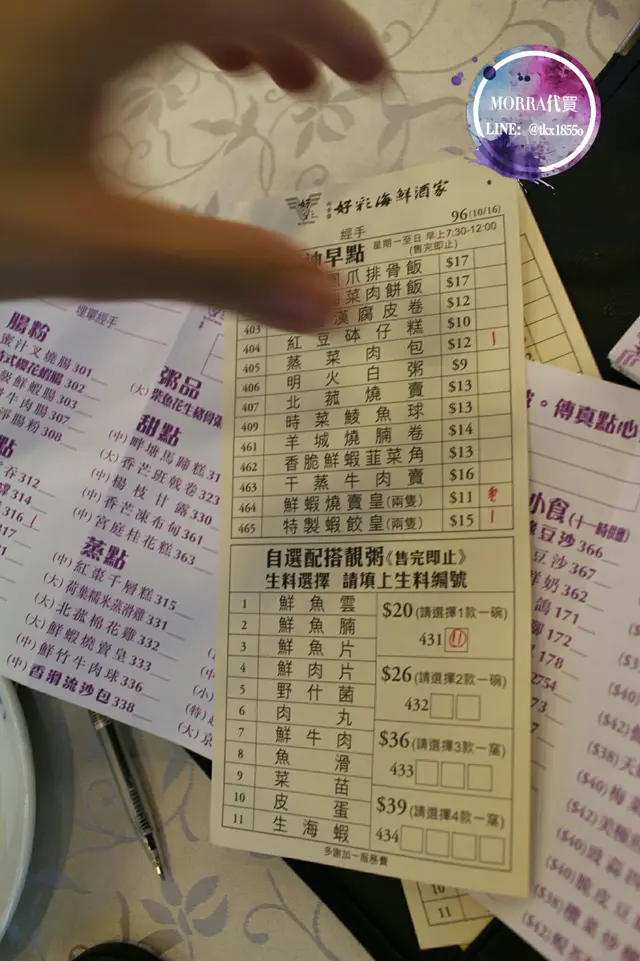 MORRA代買
LINE: @tkx1855o
好彩海鮮酒家
96(10/16)
經手
早點 星期一至日 早上7:30-12:00
(售完即止)
爪排骨飯 $17
菜肉餅飯 $17
403 漢腐皮卷 $12
404 紅豆砵仔糕 $10
405 蒸菜肉包 $12
406 明火白粥 $9
407 北菰燒賣 $13
409 時菜鯪魚球 $13
461 羊城燒腩卷 $14
462 香脆鮮蝦韮菜角 $13
463 干蒸牛肉賣 $16
464 鮮蝦燒賣皇(兩隻) $11
465 特製蝦餃皇(兩隻) $15
自選配搭靚粥《售完即止》
生料選擇 請填上生料編號
1 鮮魚雲
2 鮮魚腩
3 鮮魚片
4 鮮肉片
5 野什菌
6 肉丸
7 鮮牛肉
8 魚滑
9 菜苗
10 皮蛋
11 生海蝦
$20(請選擇1款一碗)
431
$26(請選擇2款一碗)
432
$36(請選擇3款一窩)
433
$39(請選擇4款一窩)
434
多謝加一服務費
理單經手
腸粉
蜜汁叉燒腸301
302
鮮蝦腸303
牛肉腸307
淨腸粉308
312
314
316
317
粥品
甜點
(中)畔塘馬蹄糕31
(大)香芒班戟卷323
(中)楊枝甘露330
(中)香芒凍布甸361
(中)宮庭桂花糕363
蒸點
(中)紅棗千層糕315
(大)荷葉糯米蒸滑雞331
(大)北菰棉花雞332
(大)鮮蝦燒賣皇333
(中)鮮竹牛肉球336
(中)香滑流沙包338
傳真點心
小食(十一時供應)
豆沙366
豆沙367
鮮奶362
鴿171
172
178
2754
($40)
($42)
($38)天
($40)梅菜
($42)美極
($40)
($40)脆皮豆
($38)欖菜炒
($42)
10
11